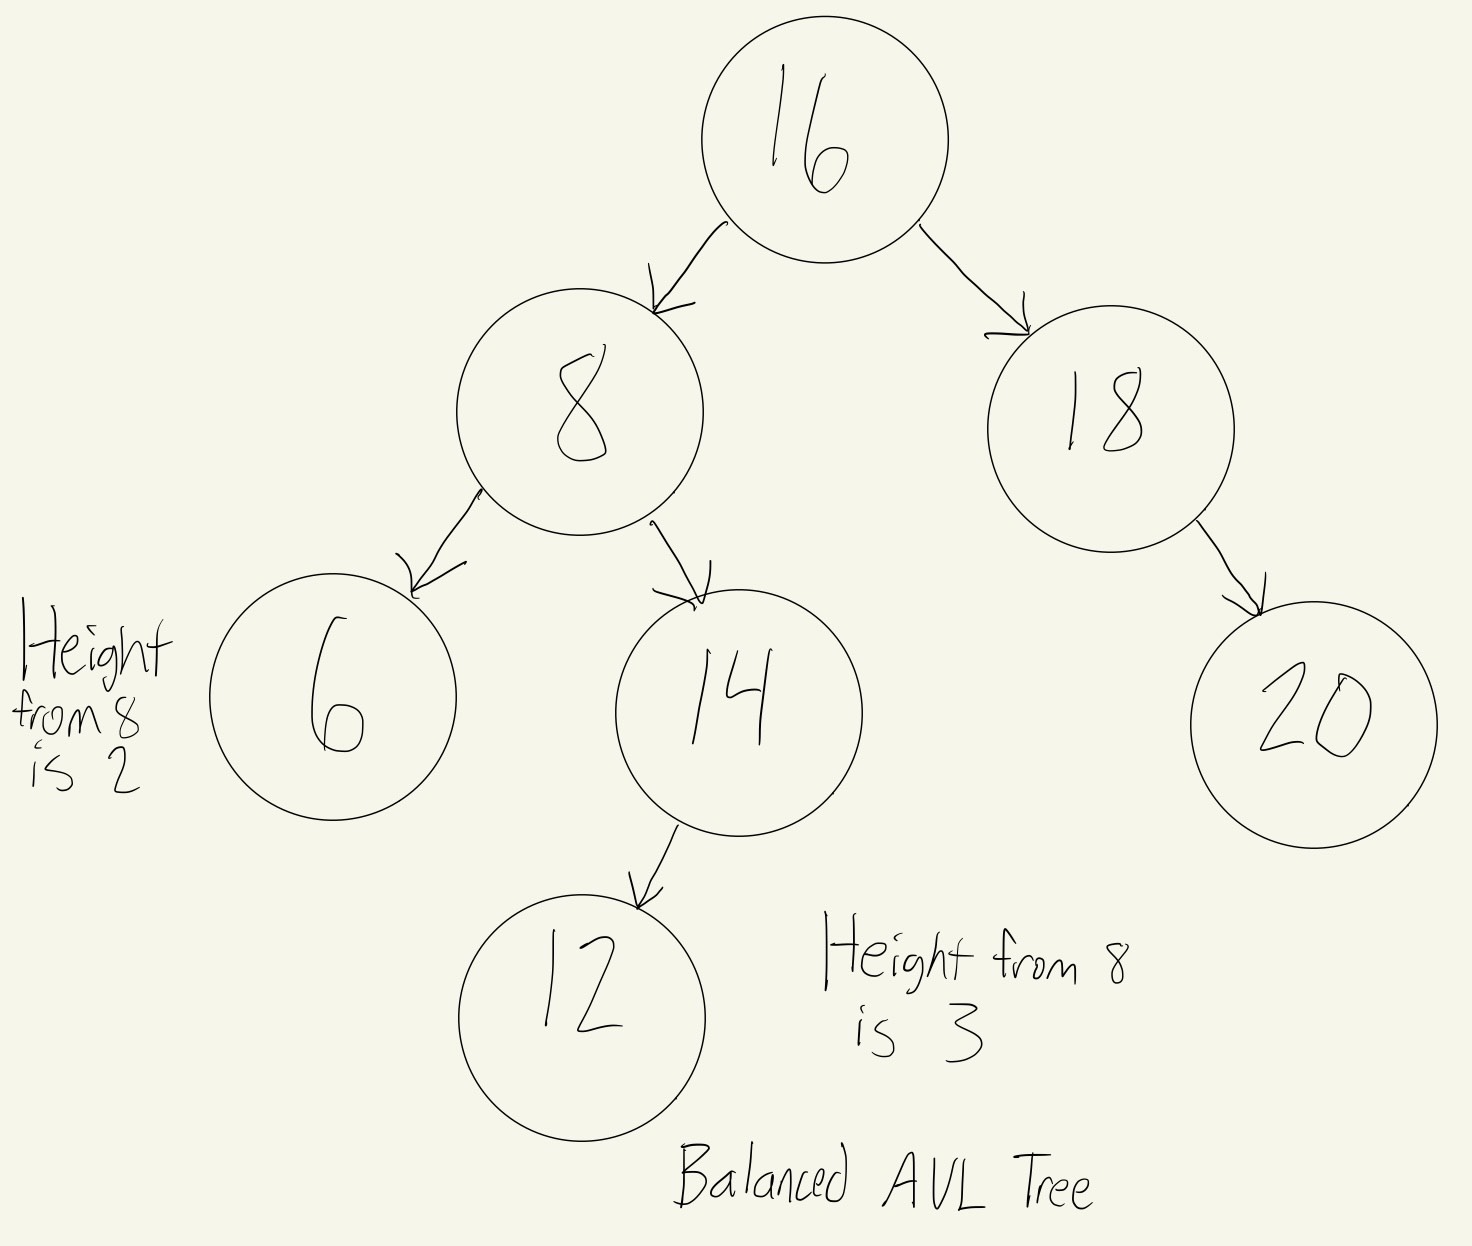 16
8
18
6
14
20
Height
from 8
is 2
12
Height from 8
is 3
Balanced AVL Tree